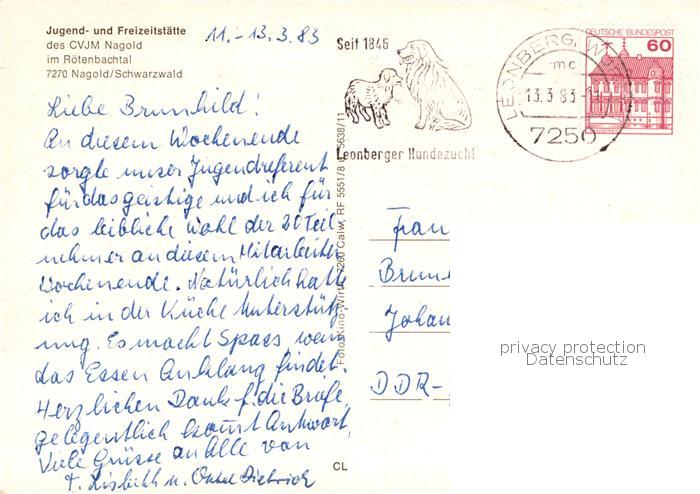 Jugend- und Freizeitstätte
des CVJM Nagold
im Rötenbachtal
7270 Nagold/Schwarzwald
11.-13.3.83
Liebe Brunhild!
An diesem Wochenende
sorgte unser Jugendreferent
für das geistige und ich für
das leibliche Wohl der 30 Teil
nehmer an diesem Mitarbeiter
Wochenende. Natürlich hatte
ich in der Küche Unterstütz
ung. Es macht Spass wenn
das Essen Anklang findet.
Herzlichen Dank f. die Briefe,
gelegentlich kommt Antwort,
Viele Grüsse an Alle von
T. Lisbeth u. Onkel Dietrich
Seit 1846
Leonberger Hundezucht
LEONBERG, W
mc
13.3.83-1
7250
DEUTSCHE BUNDESPOST
60
Foto+Kino-Wirth, 7260 Calw, RF 5551/8 5638/11
CL
Frau
Brun
Johan
DDR-
privacy protection
Datenschutz